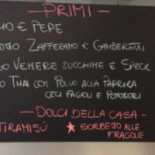 - PRIMI -
E PEPE
ZAFFERANO E GAMBERETTI
VENERE ZUCCHINE E SPECK
THAI CON POLLO ALLA PAPRIKA
CECI FAGIOLI E POMODORI
- DOLCI DELLA CASA -
TIRAMISÙ ★ SORBETTO ALLE
FRAGOLE